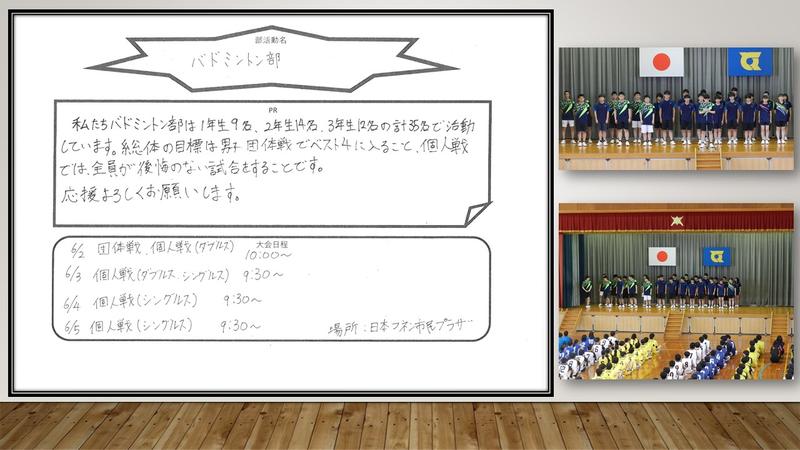 部活動名
バドミントン部
PR
私たちバドミントン部は1年生9名、2年生14名、3年生12名の計35名で活動
しています。総体の目標は男子団体戦でベスト4に入ること、個人戦
では、全員が後悔のない試合をすることです。
応援よろしくお願いします。
大会日程
6/2 団体戦、個人戦(ダブルス) 10:00〜
6/3 個人戦(ダブルス、シングルス) 9:30〜
6/4 個人戦(シングルス) 9:30〜
6/5 個人戦(シングルス) 9:30〜
場所:日本フネン市民プラザ